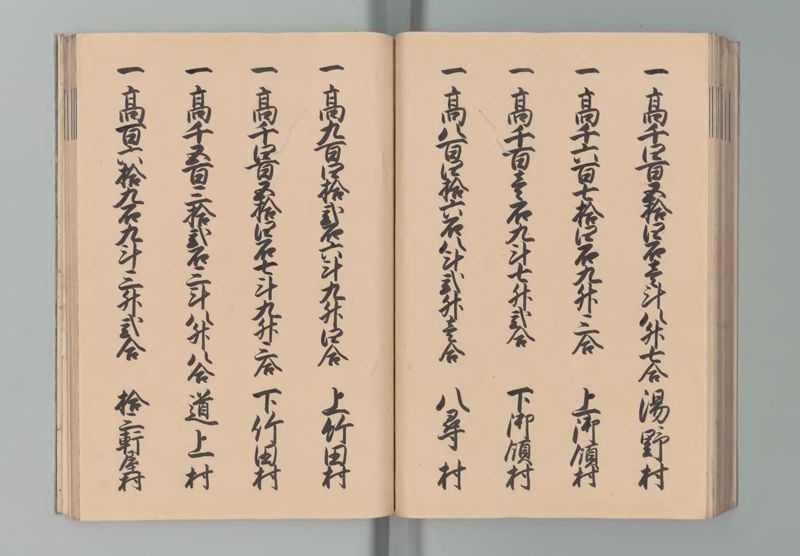 一 高千四百五拾四石壱斗八升七合 湯野村
一 高千六百七拾四石九升三合 上御領村
一 高千百壱石九斗七升弐合 下御領村
一 高八百四拾六石八斗弐升壱合 八尋村
一 高九百四拾弐石六斗九升四合 上竹田村
一 高千四百五拾四石七斗九升三合 下竹田村
一 高千五百三拾弐石三斗八升八合 道上村
一 高百六拾九石九斗三升弐合 拾三軒屋村